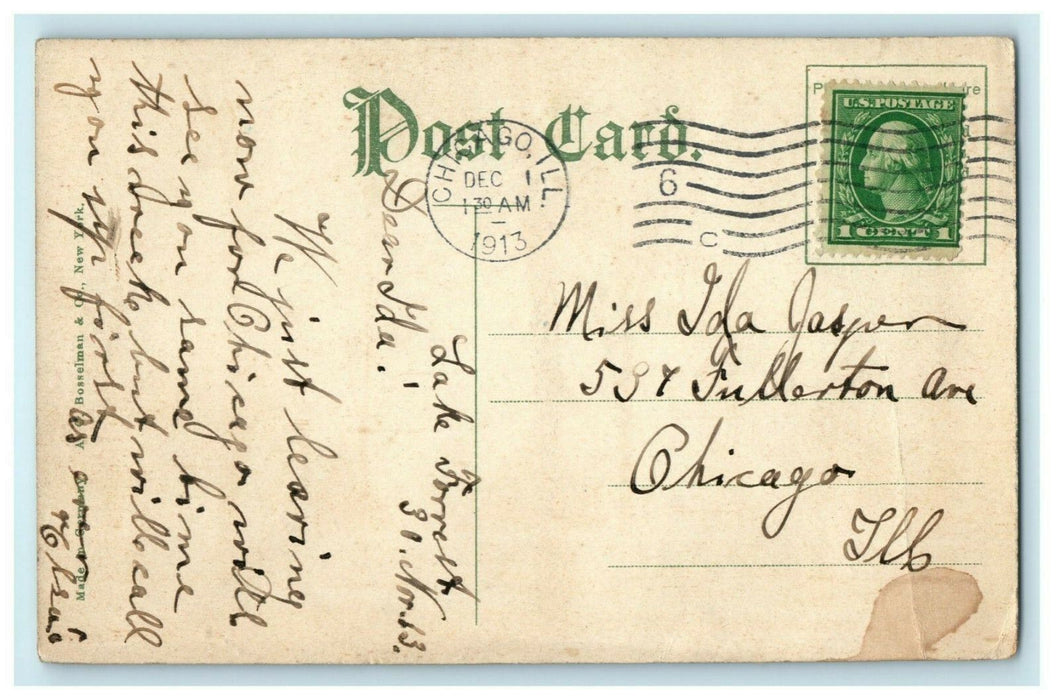 Post Card.
CHICAGO, ILL.
DEC 1
1 30 AM
1913
6
C
U.S. POSTAGE
1 CENT 1
Miss Ida Jasper
Fullerton Ave
Chicago
Ills
Lake Forrest
30. Nov. 13.
Dear Ida!
We just leaving
now for Chicago will
see you same time
this week but will call
you up first
as ever
Elsie
Made in Germany A. C. Bosselman & Co., New York.